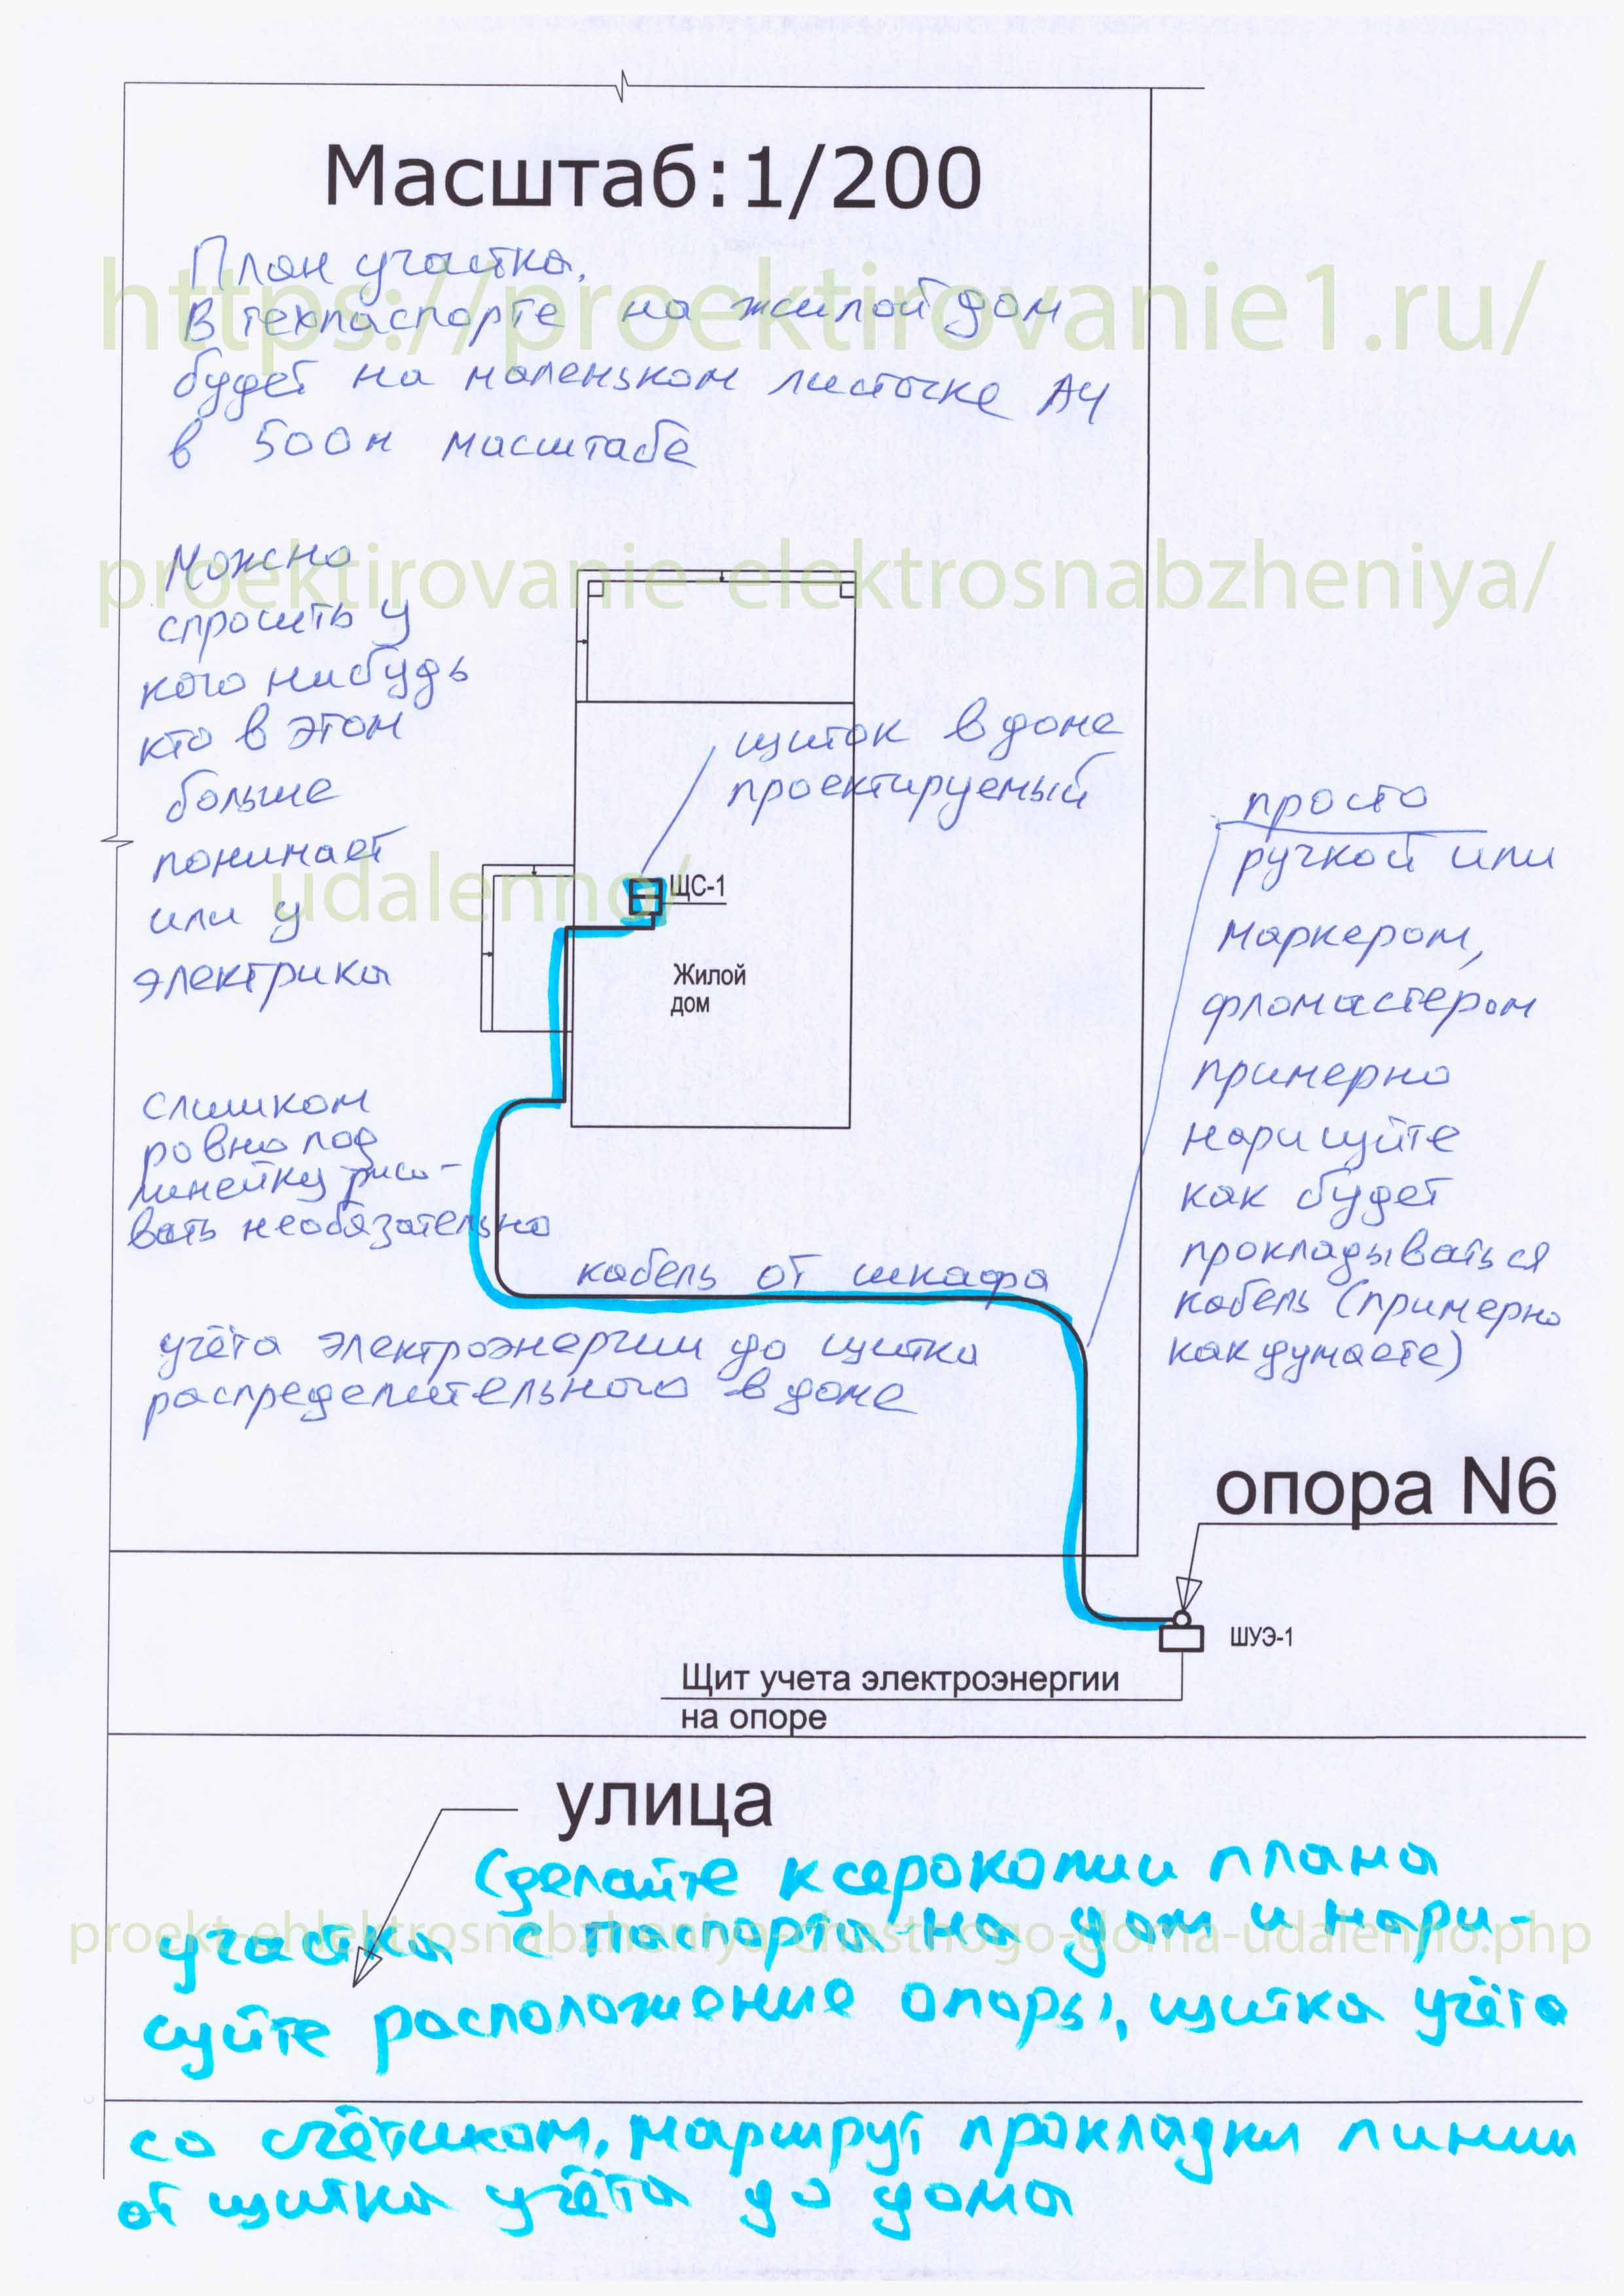 Масштаб:1/200
План участка.
В техпаспорте на жилой дом
будет на маленьком листочке А4
в 500м масштабе
https://proektirovanie1.ru/
Можно
спросить у
кого нибудь
кто в этом
больше
понимает
или у
электрика
proektirovanie-elektrosnabzheniya/
щиток в доме
проектируемый
udalenno/
ЩС-1
Жилой
дом
просто
ручкой или
маркером,
фломастером
примерно
нарисуйте
как будет
прокладываться
кабель (примерно
как думаете)
слишком
ровно под
линейку рисо-
вать необязательно
кабель от шкафа
учёта электроэнергии до щитка
распределительного в доме
опора N6
ШУЭ-1
Щит учета электроэнергии
на опоре
улица
Сделайте ксерокопии плана
участка с паспорта на дом и нари-
proekt-ehlektrosnabzheniya-chastnogo-doma-udalenno.php
суйте расположение опоры, щитка учёта
со счётчиком, маршрут прокладки линии
от щитка учёта до дома